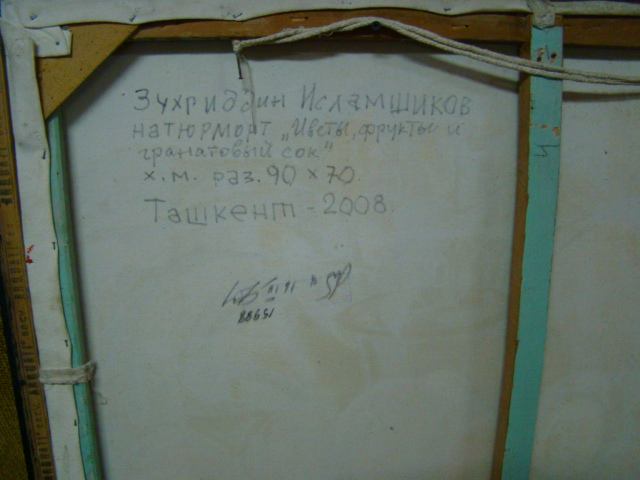 Зухриддин Исламшиков
натюрморт „Цветы, фрукты и
гранатовый сок"
х.м. раз. 90 х 70.
Ташкент - 2008.